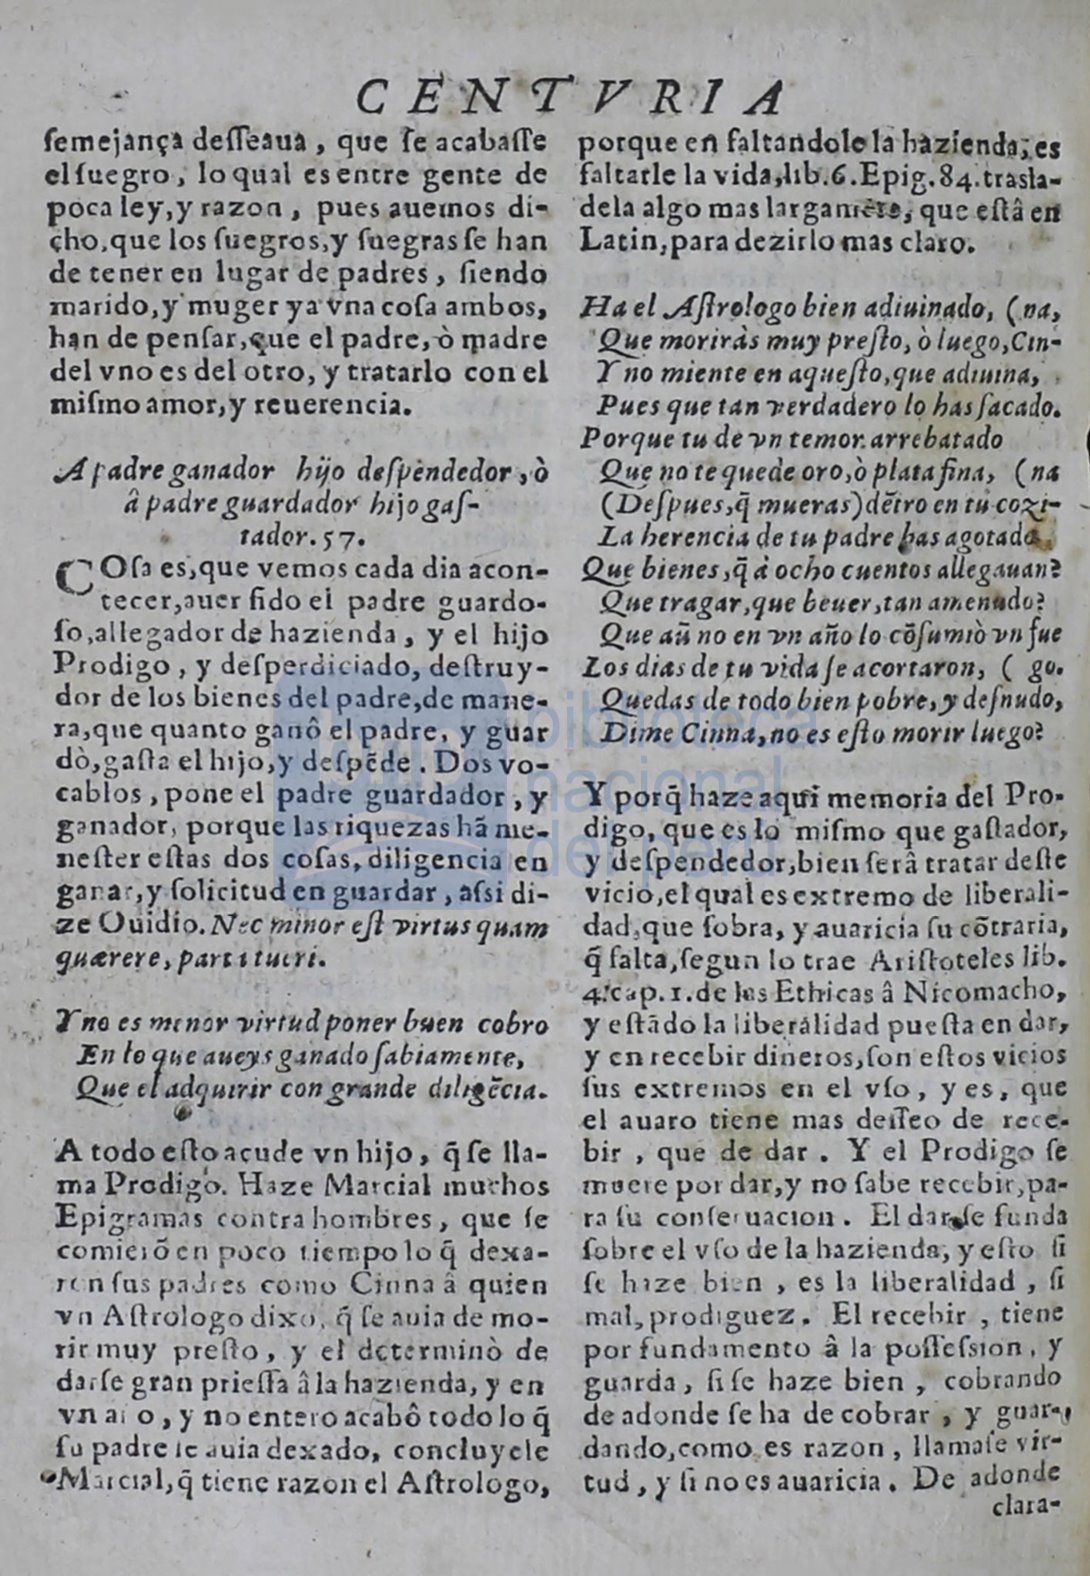 CENTVRIA
semejança desseaua, que se acabasse
el suegro, lo qual es entre gente de
poca ley, y razon, pues auemos di-
cho, que los suegros, y suegras se han
de tener en lugar de padres, siendo
marido, y muger ya vna cosa ambos,
han de pensar, que el padre, ò madre
del vno es del otro, y tratarlo con el
mismo amor, y reuerencia.
A padre ganador hijo despendedor, ò
â padre guardador hijo gas-
tador. 57.
COsa es, que vemos cada dia acon-
tecer, auer sido el padre guardo-
so, allegador de hazienda, y el hijo
Prodigo, y desperdiciado, destruy-
dor de los bienes del padre, de mane-
ra, que quanto ganô el padre, y guar
dò, gasta el hijo, y despẽde. Dos vo-
cablos, pone el padre guardador, y
ganador, porque las riquezas hã me-
nester estas dos cosas, diligencia en
ganar, y solicitud en guardar, assi di-
ze Ouidio. Nec minor est virtus quam
quærere, parta tueri.
Y no es menor virtud poner buen cobro
En lo que aueys ganado sabiamente,
Que el adquirir con grande diligẽcia.
A todo esto acude vn hijo, q̃ se lla-
ma Prodigo. Haze Marcial muchos
Epigramas contra hombres, que se
comierõ en poco tiempo lo q̃ dexa-
ron sus padres como Cinna â quien
vn Astrologo dixo, q̃ se auia de mo-
rir muy presto, y el determinò de
darse gran priessa â la hazienda, y en
vn año, y no entero acabô todo lo q̃
su padre le auia dexado, concluyele
Marcial, q̃ tiene razon el Astrologo,
porque en faltandole la hazienda, es
faltarle la vida, lib. 6. Epig. 84. trasla-
dela algo mas largamẽte, que estâ en
Latin, para dezirlo mas claro.
Ha el Astrologo bien adiuinado, (na,
Que moriràs muy presto, ò luego, Cin-
Y no miente en aquesto, que adiuina,
Pues que tan verdadero lo has sacado.
Porque tu de vn temor arrebatado
Que no te quede oro, ò plata fina, (na
(Despues, q̃ mueras) dẽtro en tu cozi-
La herencia de tu padre has agotado.
Que bienes, q̃ à ocho cuentos allegauan?
Que tragar, que beuer, tan amenudo?
Que aũ no en vn año lo cõsumiò vn jue
Los dias de tu vida se acortaron, ( go.
Quedas de todo bien pobre, y desnudo,
Dime Cinna, no es esto morir luego?
Y porq̃ haze aqui memoria del Pro-
digo, que es lo mismo que gastador,
y despendedor, bien serâ tratar deste
vicio, el qual es extremo de liberali-
dad, que sobra, y auaricia su cõtraria,
q̃ falta, segun lo trae Aristoteles lib.
4. cap. 1. de las Ethicas â Nicomacho,
y estãdo la liberalidad puesta en dar,
y en recebir dineros, son estos vicios
sus extremos en el vso, y es, que
el auaro tiene mas desseo de rece-
bir, que de dar. Y el Prodigo se
muere por dar, y no sabe recebir, pa-
ra su conseruacion. El dar se funda
sobre el vso de la hazienda, y esto si
se haze bien, es la liberalidad, si
mal, prodiguez. El recebir, tiene
por fundamento â la possession, y
guarda, si se haze bien, cobrando
de adonde se ha de cobrar, y guar-
dando, como es razon, llamase vir-
tud, y si no es auaricia. De adonde
clara-
biblioteca
nacional
del perú